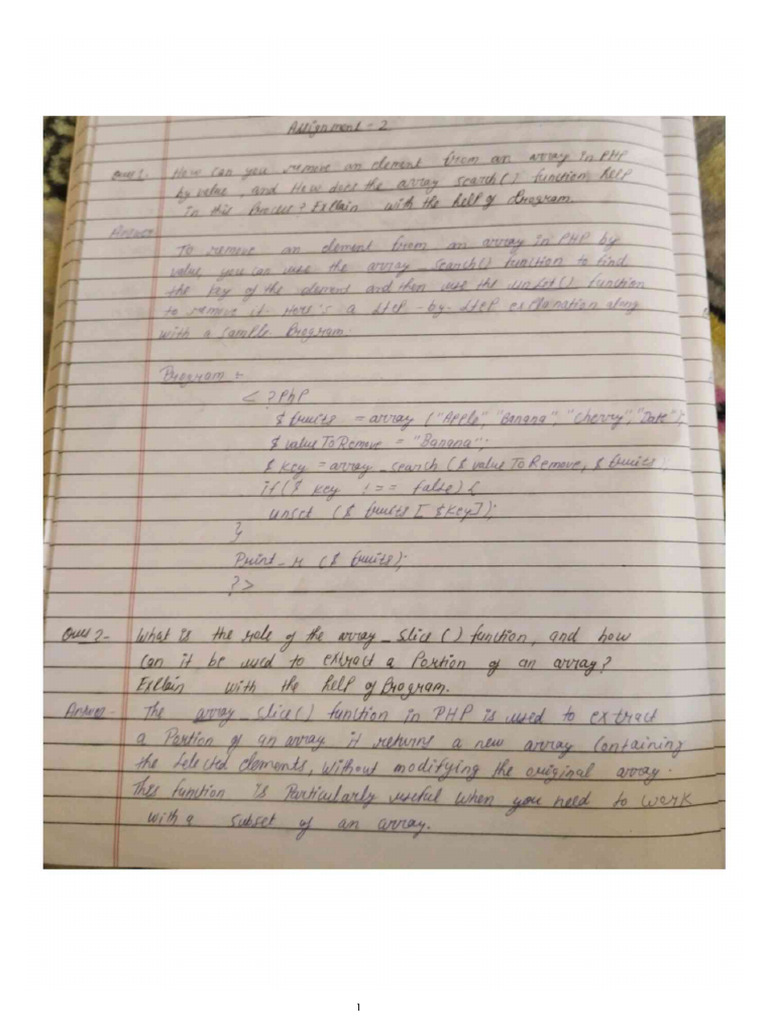 Assignment - 2
Ques 1. How can you remove an element from an array in PHP
by value, and How does the array search() function help
in this Process? Explain with the help of Program.
Answer
To remove an element from an array in PHP by
value, you can use the array_search() function to find
the key of the element and then use the unset() function
to remove it. Here's a step-by-step explanation along
with a sample Program.
Program :-
< ?PhP
$ fruits = array ("Apple", "Banana", "Cherry", "Date");
$ value To Remove = "Banana";
$ key = array_search ($ value To Remove, $ fruits);
if($ key !== false) {
unset ($ fruits [ $key]);
}
Print_r ($ fruits);
? >
Ques 2- What is the role of the array_slice () function, and how
can it be used to extract a Portion of an array?
Explain with the help of Program.
Answer- The array_slice() function in PHP is used to extract
a Portion of an array. it returns a new array Containing
the selected elements, without modifying the original array.
This function is Particularly useful when you need to work
with a subset of an array.
1